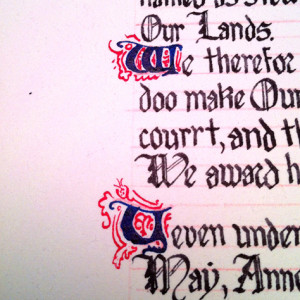 named as
Our Lands.
We therefor
doo make Our
courrt, and th
We award h
Yeven under
May, Anno